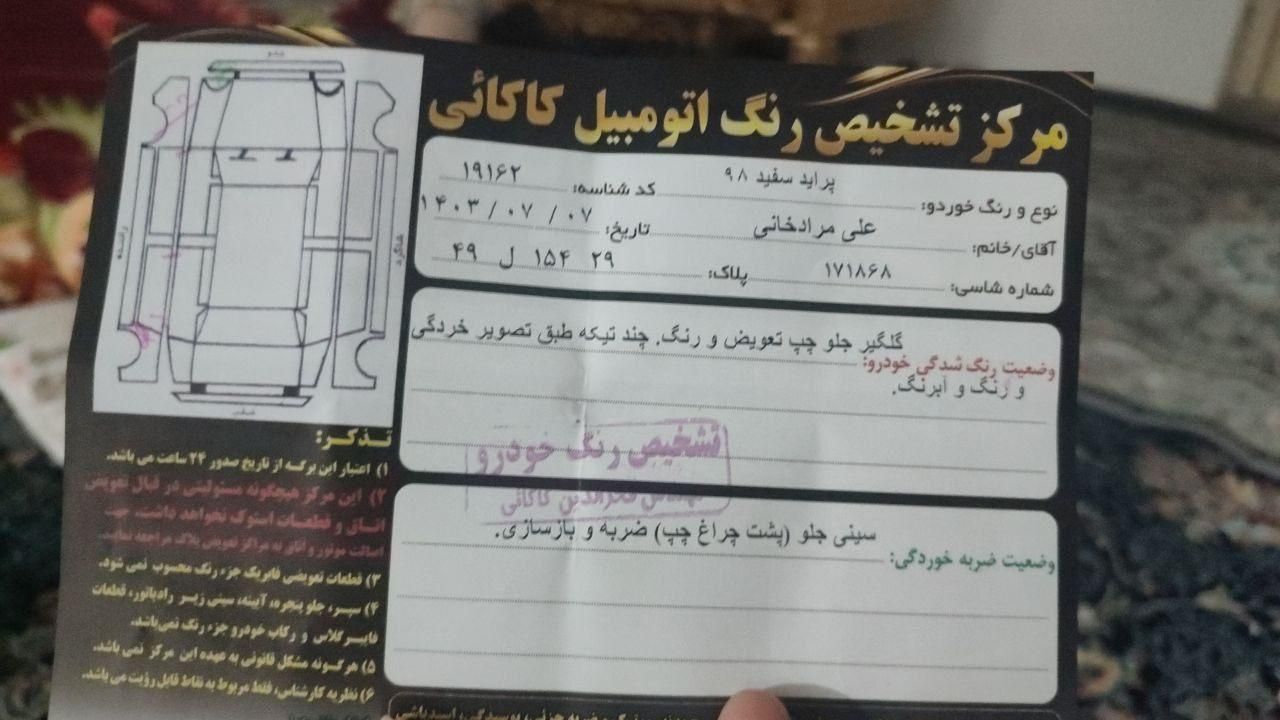 مرکز تشخیص رنگ اتومبیل کاکائی
نوع و رنگ خوردو: پراید سفید ۹۸ کد شناسه: ۱۹۱۶۲
آقای/خانم: علی مرادخانی تاریخ: ۱۴۰۳/۰۷/۰۷
شماره شاسی: ۱۷۱۸۶۸ پلاک: ۲۹ ۱۵۴ ل ۴۹
وضعیت رنگ شدگی خودرو: گلگیر جلو چپ تعویض و رنگ. چند تیکه طبق تصویر خردگی
و رنگ و آبرنگ.
تشخیص رنگ خودرو
مهندس فخرالدین کاکائی
وضعیت ضربه خوردگی: سینی جلو (پشت چراغ چپ) ضربه و بازسازی.
جلو
راننده
شاگرد
عقب
تذکر:
۱) اعتبار این برگه از تاریخ صدور ۲۴ ساعت می باشد.
۲) این مرکز هیچگونه مسئولیتی در قبال تعویض
اتاق و قطعات استوک نخواهد داشت. جهت
اصالت موتور و اتاق به مراکز تعویض پلاک مراجعه نمایید.
۳) قطعات تعویضی فابریک جزء رنگ محسوب نمی شود.
۴) سپر، جلو پنجره، آیینه، سینی زیر رادیاتور، قطعات
فایبرگلاس و رکاب خودرو جزء رنگ نمی‌باشد.
۵) هرگونه مشکل قانونی به عهده این مرکز نمی باشد.
۶) نظریه کارشناس، فقط مربوط به نقاط قابل رؤیت می باشد.